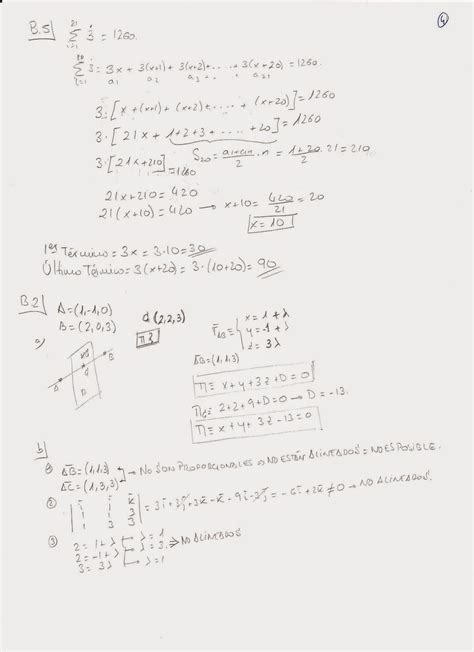 4
B.5| 21 Σ i=1 3̇ = 1260.
20 Σ i=0 3̇ = 3x + 3(x+1) + 3(x+2)+... + 3(x+20) = 1260.
a₁ a₂ a₃ ... a₂₁
3·[x + (x+1) + (x+2)+.... + (x+20)] = 1260
3·[21x + 1+2+3+.....+20] = 1260
3·[21x+210] = 1260 S₂₀ = a₁+an/2 · n = 1+20/2 · 21 = 210
21x+210 = 420
21(x+10) = 420 → x+10 = 420/21 = 20
x = 10
1er Término = 3x = 3·10 = 30
Último Término = 3(x+20) = 3·(10+20) = 90
B.2| A = (1,-1,0) C(2,2,3)
B = (2,0,3) π?
a) r_AB = { x = 1+λ
y = -1+λ
z = 3λ
A B
AB = (1,1,3)
π ≡ x + y + 3z + D = 0
π_C = 2+2+9+D = 0 → D = -13.
π ≡ x + y + 3z - 13 = 0
b)
① AB = (1,1,3)
AC = (1,3,3) → NO SON PROPORCIONALES ⇒ NO ESTÁN ALINEADOS = NO ES POSIBLE.
② | i j k
1 1 3
1 3 3 | = 3i + 3j + 3k - k - 9i - 3j = -6i + 2k ≠ 0 → NO ALINEADOS.
③ 2 = 1+λ → λ = 1
2 = -1+λ → λ = 3. ⇒ NO ALINEADOS
3 = 3λ → λ = 1